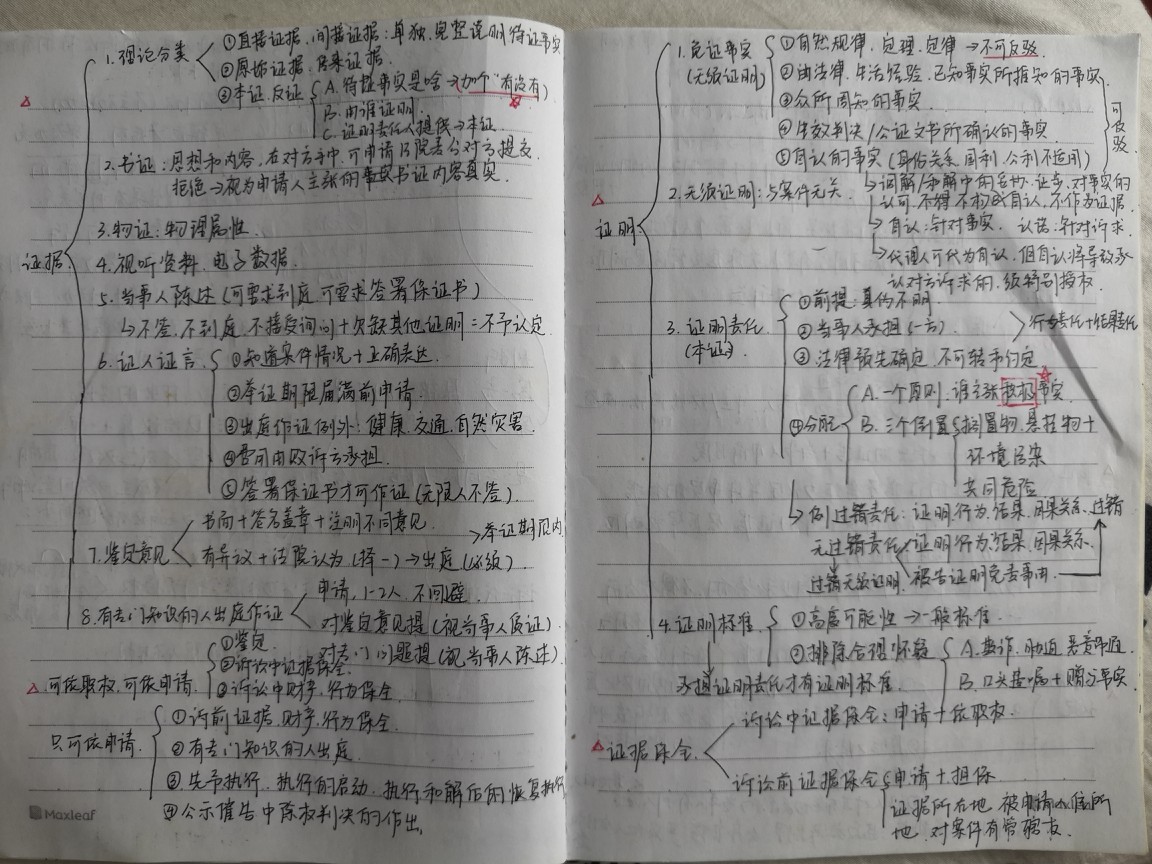 1. 理论分类
①直接证据、间接证据:单独、完整说明待证事实
②原始证据、传来证据.
③本证、反证
A. 待证事实是啥→加个"有没有"
B. 由谁证明.
C. 证明责任人提供→本证
2. 书证:思想和内容,在对方手中,可申请法院责令对方提交.
拒绝→视为申请人主张的书证内容真实.
3. 物证:物理属性.
证据
4. 视听资料、电子数据.
5. 当事人陈述(可要求到庭,可要求签署保证书)
↳不签、不到庭、不接受询问+欠缺其他证明=不予认定.
6. 证人证言.
①知道案件情况+正确表达.
②举证期限届满前申请.
③出庭作证例外:健康、交通、自然灾害
④费用由败诉方承担.
⑤签署保证书才可作证(无限人不签).
7. 鉴定意见
书面+签名盖章+注明不同意见
有异议+法院认为(择一)→出庭(必须)
>举证期限内
8. 有专门知识的人出庭作证
申请,1-2人,不回避.
对鉴定意见提(视当事人质证).
对专门问题提(视当事人陈述).
可依职权,可依申请.
①鉴定.
②诉讼中证据保全.
③诉讼中财产、行为保全.
只可依申请.
①诉前证据、财产、行为保全.
②有专门知识的人出庭.
③先予执行、执行的启动、执行和解后的恢复执行
④公示催告中除权判决的作出.
Maxleaf
证明
1. 免证事实
(无须证明)
①自然规律、定理、定律→不可反驳.
②由法律、生活经验、已知事实所推知的事实,
③众所周知的事实.
④生效判决/公证文书所确认的事实
⑤自认的事实(身份关系、国利、公利不适用)
可反驳
↳调解/和解中的妥协、让步,对事实的
认可,不得不构成自认,不作为证据.
↳自认:针对事实. 认诺:针对诉求.
↳代理人可代为自认,但自认将导致承
认对方诉求的,须特别授权.
2. 无须证明:与案件无关.
3. 证明责任
(本证).
①前提:真伪不明.
②当事人承担(一方).
③法律预先确定,不可转予约定
>行为责任+结果责任
④分配
A. 一个原则,谁主张积极事实
B. 三个倒置
搁置物、悬挂物+
环境污染
共同危险
↳例:过错责任:证明行为、结果、因果关系、过错
无过错责任
证明行为、结果、因果关系.
过错无须证明.
被告证明免责事由.
4. 证明标准.
①高度可能性→一般标准.
②排除合理怀疑
A. 欺诈、胁迫、恶意串通.
B. 口头遗嘱+赠与事实.
承担证明责任才有证明标准.
证据保全
诉讼中证据保全:申请+依职权.
诉讼前证据保全
申请+担保
证据所在地、被申请人住所
地、对案件有管辖权.